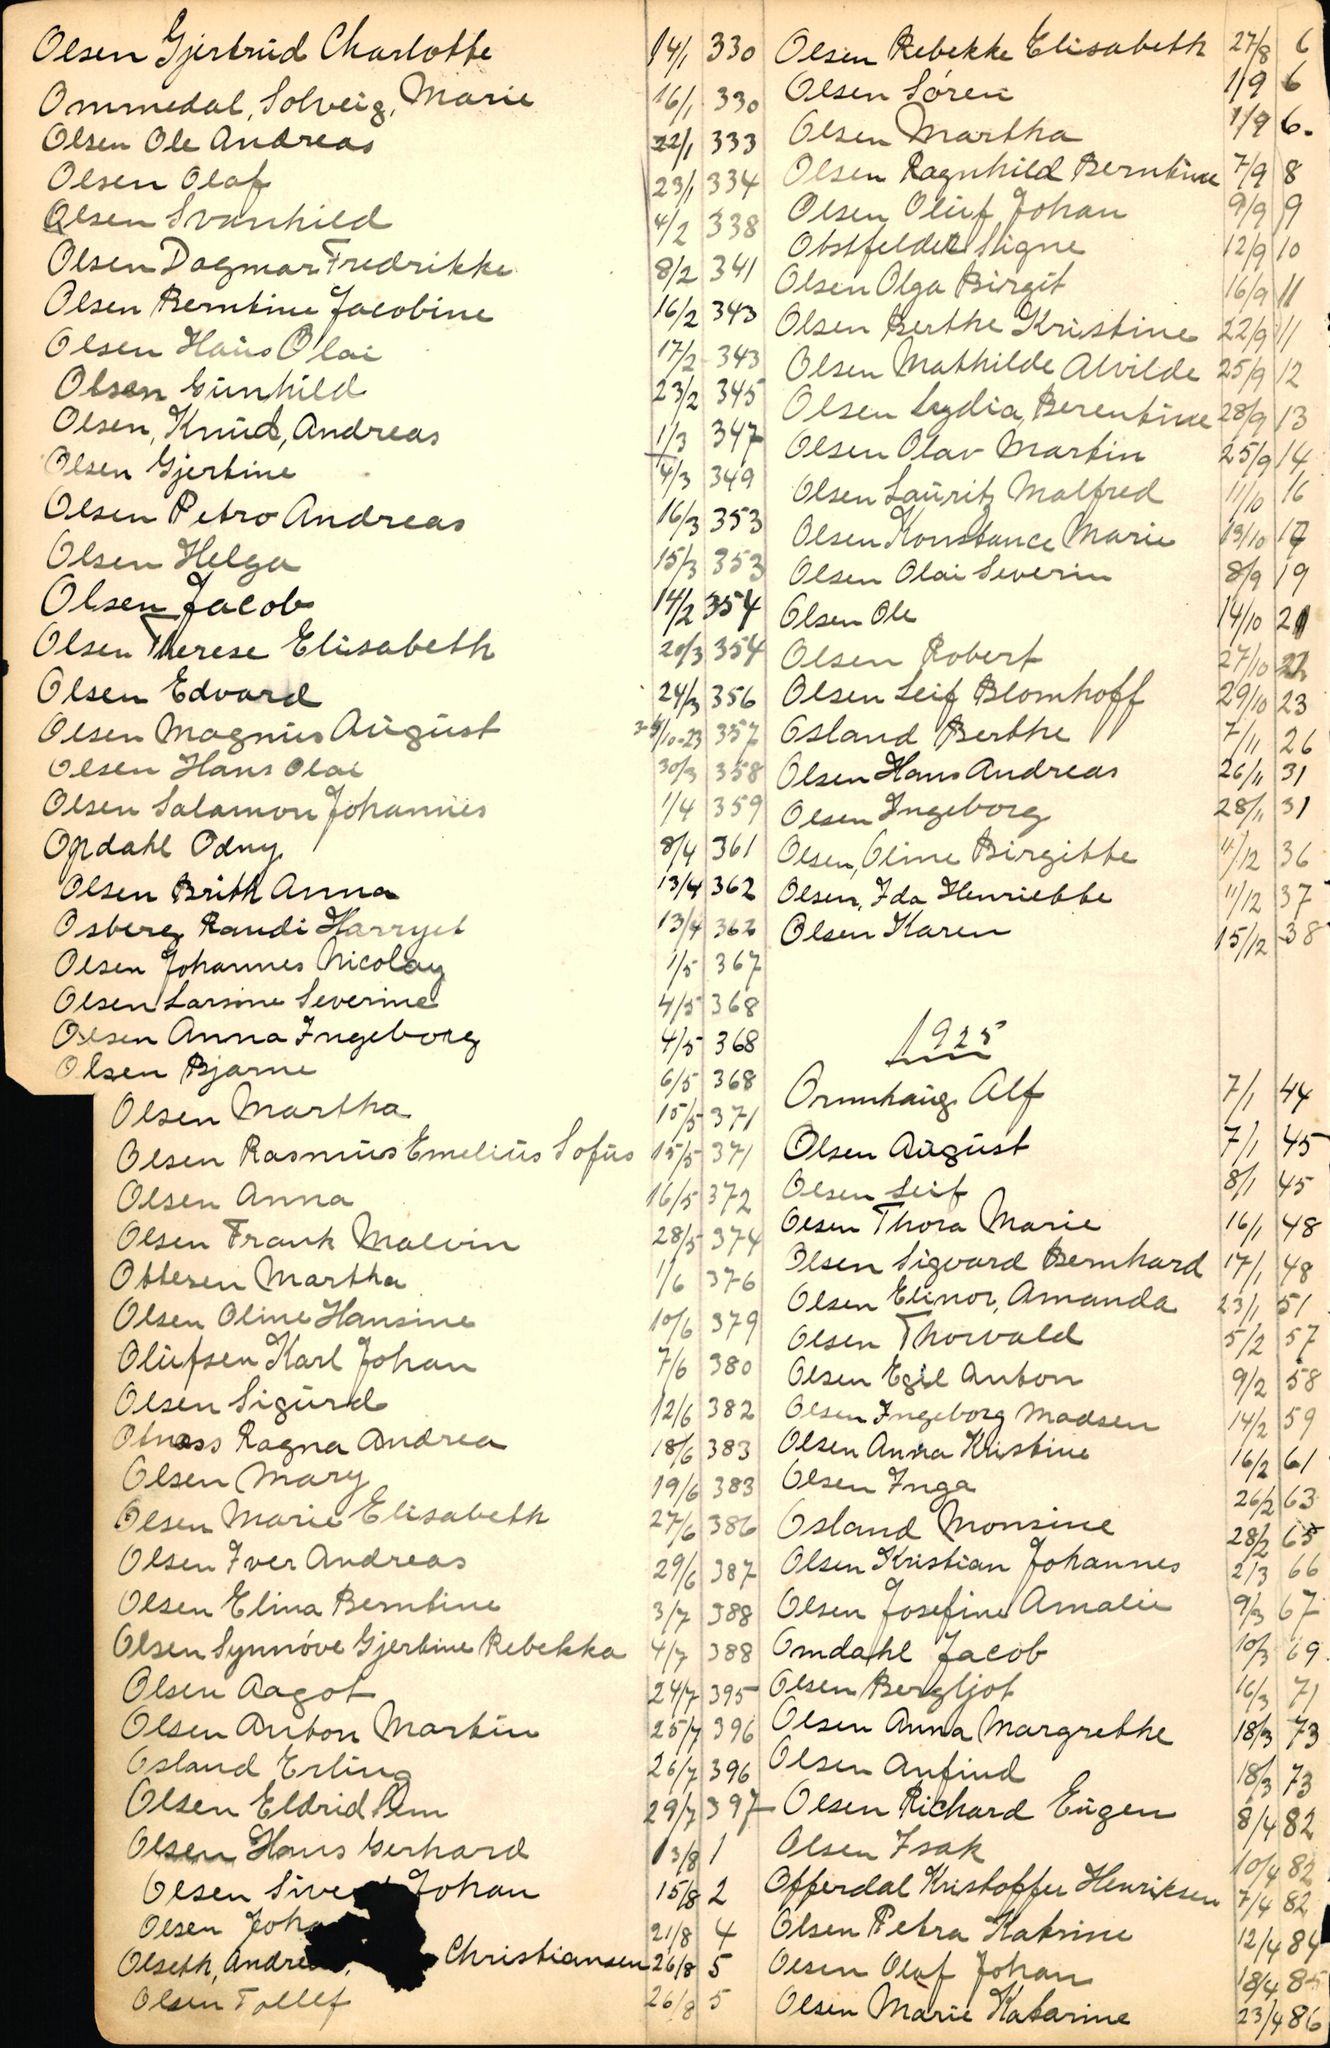 Olsen Gjertrud Charlotte 14/1 330
Ommedal, Solveig, Marie 16/1 330
Olsen Ole Andreas 22/1 333
Olsen Olaf 23/1 334
Olsen Svanhild 4/2 338
Olsen Dagmar Fredrikke 8/2 341
Olsen Berntine Jacobine 16/2 343
Olsen Hans Olai 17/2 343
Olsen Gunhild 23/2 345
Olsen, Knud, Andreas 1/3 347
Olsen Gjertine 4/3 349
Olsen Petro Andreas 16/3 353
Olsen Helga 15/3 353
Olsen Jacob 14/2 354
Olsen Therese Elisabeth 20/3 354
Olsen Edvard 24/3 356
Olsen Magnus August /10-23 357
Olsen Hans Olai 30/3 358
Olsen Salamon Johannes 1/4 359
Opdahl Odny 8/4 361
Olsen Brith Anna 13/4 362
Osberg Randi Harryet 13/4 362
Olsen Johannes Nicolay 1/5 367
Olsen Larsine Severine 4/5 368
Olsen Anna Ingeborg 4/5 368
Olsen Bjarne 6/5 368
Olsen Martha 15/5 371
Olsen Rasmus Emelius Sofus 15/5 371
Olsen Anna 16/5 372
Olsen Frank Malvin 28/5 374
Ottesen Martha 1/6 376
Olsen Oline Hansine 10/6 379
Olufsen Karl Johan 7/6 380
Olsen Sigurd 12/6 382
Otness Ragna Andrea 18/6 383
Olsen Mary 19/6 383
Olsen Marie Elisabeth 27/6 386
Olsen Iver Andreas 29/6 387
Olsen Elina Berntine 3/7 388
Olsen Synnóve Gjertine Rebekka 4/7 388
Olsen Aagot 24/7 395
Olsen Anton Martin 25/7 396
Osland Erling 26/7 396
Olsen Eldrid 29/7 397
Olsen Hans Gerhard 13/8 1
Olsen Johan 15/8 2
Olsen 21/8 4
Olseth, Christiansen 26/8 5
Olsen Tollef 26/8 5
Olsen Rebekke Elisabeth 27/8 6
Olsen Sóren 1/9 6
Olsen Martha 1/9 6.
Olsen Ragnhild Berntine 7/9 8
Olsen Oluf Johan 9/9 9
Obstfelder Signe 12/9 10
Olsen Olga Birgit 16/9 11
Olsen Berthe Kristine 22/9 11
Olsen Mathilde Alvilde 25/9 12
Olsen Lydia, Berentine 28/9 13
Olsen Olav Martin 25/9 14
Olsen Lauritz Malfred 11/10 16
Olsen Konstance Marie 13/10 17
Olsen Olai Severin 8/9 19
Olsen Ole 14/10 21
Olsen Robert 27/10 22
Olsen Leif Blomhoff 29/10 23
Osland Berthe 7/11 26
Olsen Hans Andreas 26/11 31
Olsen Ingeborg 28/11 31
Olsen, Oline Birgitte 4/12 36
Olsen, Ida Henriette 11/12 37
Olsen Karen 15/12 38
1925
Ormhaug Alf 7/1 44
Olsen August 7/1 45
Olsen Leif 8/1 45
Olsen Thora Marie 16/1 48
Olsen Sigvard Bernhard 17/1 48
Olsen Elinor, Amanda 23/1 51
Olsen Thorvald 5/2 57
Olsen Egil Anton 9/2 58
Olsen Ingeborg Madsen 14/2 59
Olsen Anna Kristine 16/2 61
Olsen Inga 26/2 63
Osland Monsine 28/2 65
Olsen Kristian Johannes 2/3 66
Olsen Josefine Amalie 9/3 67
Omdahl Jacob 10/3 69
Olsen Bergljot 16/3 71
Olsen Anna Margrethe 18/3 73
Olsen Anfind 18/3 73
Olsen Richard Eugen 8/4 82
Olsen Isak 10/4 82
Offerdal Kristoffer Henriksen 7/4 82
Olsen Petra Katrine 12/4 84
Olsen Olaf Johan 18/4 85
Olsen Marie Katarine 23/4 86